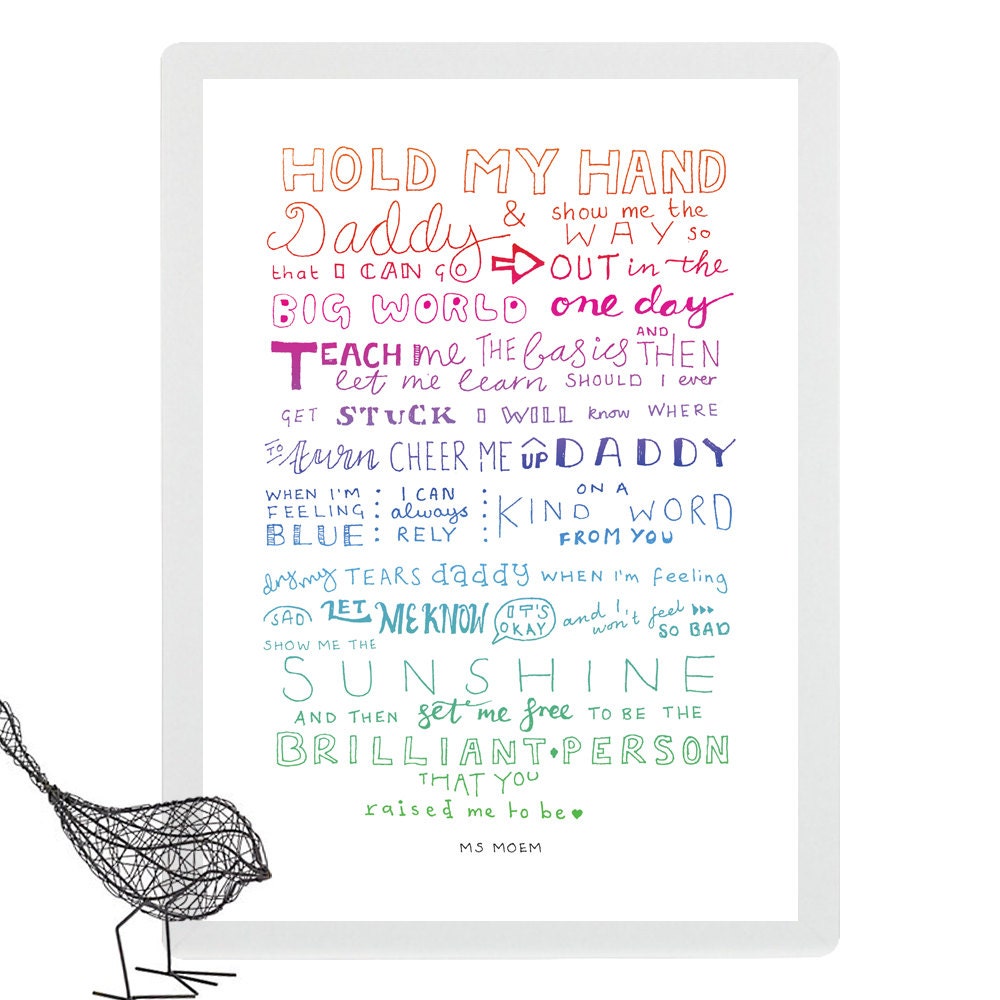 HOLD MY HAND
Daddy & show me the
WAY so
that I CAN GO OUT in the
BIG WORLD one day
TEACH me THE basics AND THEN
let me learn SHOULD I ever
GET STUCK I WILL know WHERE
TO turn CHEER ME UP DADDY
WHEN I'M FEELING BLUE I CAN always RELY ON A KIND WORD FROM YOU
dry my TEARS daddy WHEN I'm feeling
SAD LET ME KNOW IT'S OKAY and I won't feel SO BAD
SHOW ME THE
SUNSHINE
AND THEN set me free TO BE THE
BRILLIANT PERSON
THAT YOU
raised me to be
MS MOEM